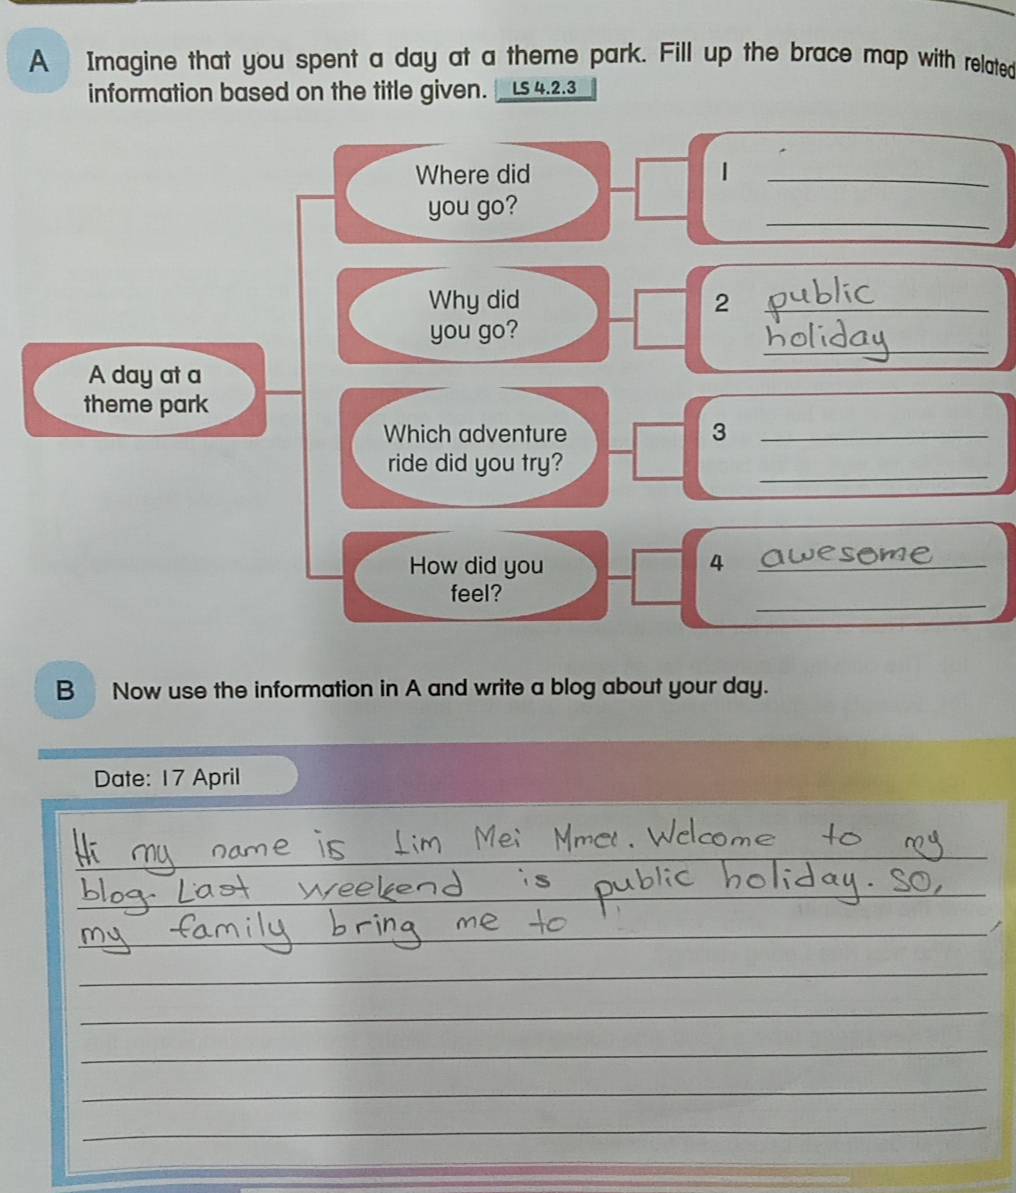 A Imagine that you spent a day at a theme park. Fill up the brace map with related
information based on the title given. LS 4.2.3
Where did
you go?
1
Why did
you go?
2 public
holiday
A day at a
theme park
Which adventure
ride did you try?
3
How did you
feel?
4 awesome
B Now use the information in A and write a blog about your day.
Date: 17 April
Hi my name is Lim Mei . Welcome to my
blog. Last weekend is public holiday. So,
my family bring me to